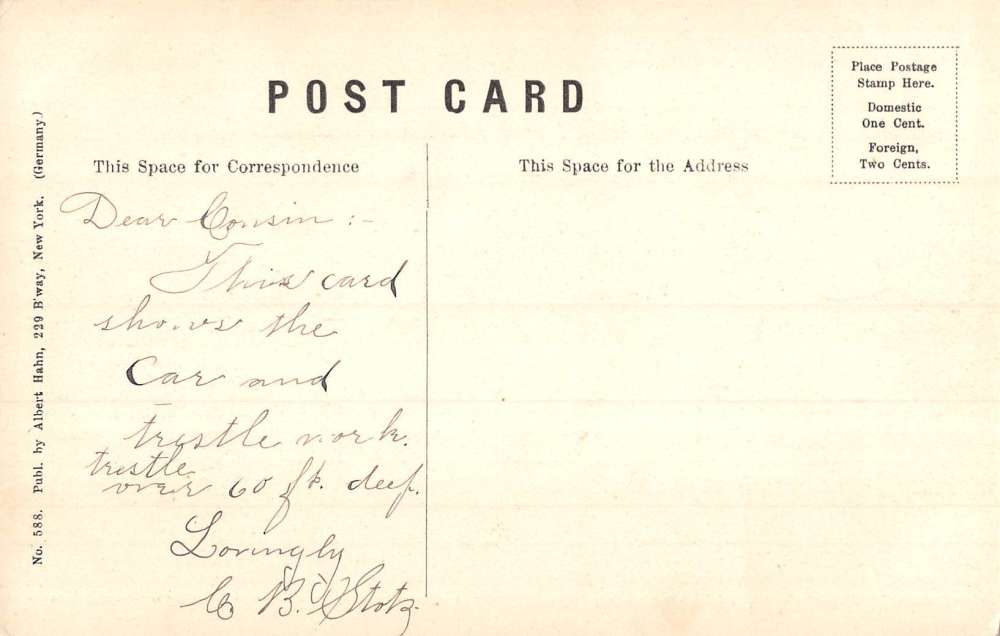 POST CARD
Place Postage
Stamp Here.
Domestic
One Cent.
Foreign,
Two Cents.
This Space for Correspondence
This Space for the Address
Dear Cousin :-
This card
shows the
Car and
trestle work.
trestle
over 60 ft. deep.
Lovingly
C B. Stotz.
No. 588. Publ. by Albert Hahn, 229 B'way, New York. (Germany.)